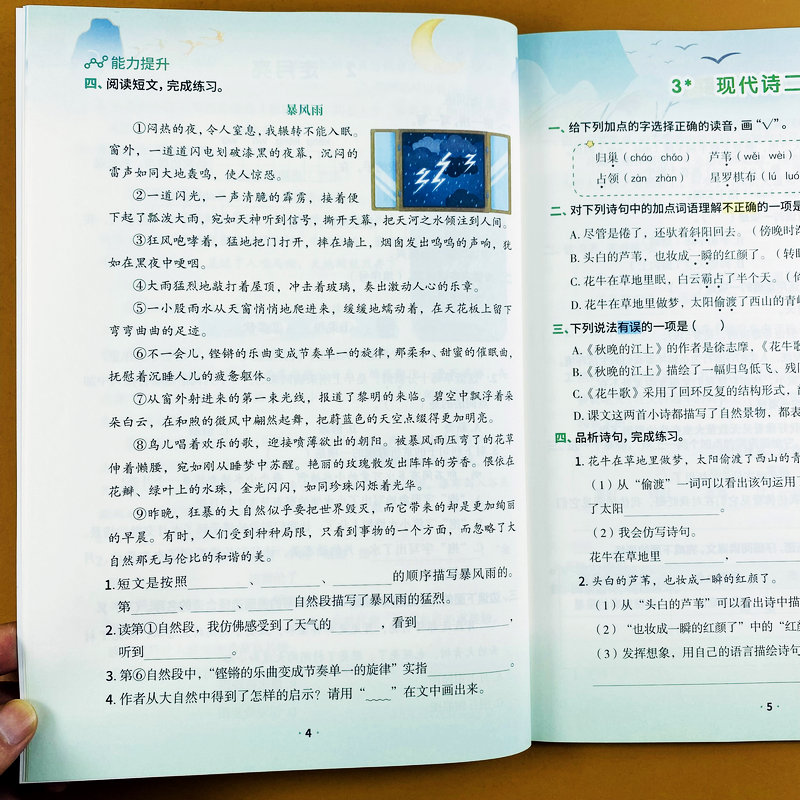 能力提升
四、阅读短文，完成练习。
暴风雨
①闷热的夜，令人窒息，我辗转不能入眠。
窗外，一道道闪电划破漆黑的夜幕，沉闷的
雷声如同大地轰鸣，使人惊恐。
②一道闪光，一声清脆的霹雳，接着便
下起了瓢泼大雨，宛如天神听到信号，撕开天幕，把天河之水倾注到人间。
③狂风咆哮着，猛地把门打开，摔在墙上，烟囱发出呜呜的声响，犹
如在黑夜中哽咽。
④大雨猛烈地敲打着屋顶，冲击着玻璃，奏出激动人心的乐章。
⑤一小股雨水从天窗悄悄地爬进来，缓缓地蠕动着，在天花板上留下
弯弯曲曲的足迹。
⑥不一会儿，铿锵的乐曲变成节奏单一的旋律，那柔和、甜蜜的催眠曲，
抚慰着沉睡人儿的疲惫躯体。
⑦从窗外射进来的第一束光线，报道了黎明的来临。碧空中飘浮着朵
朵白云，在和煦的微风中翩然起舞，把蔚蓝色的天空点缀得更加明亮。
⑧鸟儿唱着欢乐的歌，迎接喷薄欲出的朝阳。被暴风雨压弯了的花草
伸着懒腰，宛如刚从睡梦中苏醒。艳丽的玫瑰散发出阵阵的芳香。偎依在
花瓣、绿叶上的水珠，金光闪闪，如同珍珠闪烁着光华。
⑨昨晚，狂暴的大自然似乎要把世界毁灭，而它带来的却是更加绚丽
的早晨。有时，人们受到种种局限，只看到事物的一个方面，而忽略了大
自然那无与伦比的和谐的美。
1.短文是按照________、________、________的顺序描写暴风雨的。
第________________自然段描写了暴风雨的猛烈。
2.读第①自然段，我仿佛感受到了天气的______，看到__________，
听到__________。
3.第⑥自然段中，“铿锵的乐曲变成节奏单一的旋律”实指__________。
4.作者从大自然中得到了怎样的启示？请用“﹏﹏”在文中画出来。
·4·
3* 现代诗二
一、给下列加点的字选择正确的读音，画“√”。
归巢（cháo chāo） 芦苇（wěi wèi）
占领（zàn zhàn） 星罗棋布（lú luó
二、对下列诗句中的加点词语理解不正确的一项是
A. 尽管是倦了，还驮着斜阳回去。（傍晚时
B. 头白的芦苇，也妆成一瞬的红颜了。（转
C. 花牛在草地里眠，白云霸占了半个天。
D. 花牛在草地里做梦，太阳偷渡了西山的青
三、下列说法有误的一项是（ ）
A.《秋晚的江上》的作者是徐志摩，《花牛
B.《秋晚的江上》描绘了一幅归鸟低飞、残
C.《花牛歌》采用了回环反复的结构形式，
D. 课文这两首小诗都描写了自然景物，都表
四、品析诗句，完成练习。
1. 花牛在草地里做梦，太阳偷渡了西山的青
（1）从“偷渡”一词可以看出该句运用了
了太阳______________。
（2）我会仿写诗句。
花牛在草地里________，
2. 头白的芦苇，也妆成一瞬的红颜了。
（1）从“头白的芦苇”可以看出诗中描
（2）“也妆成一瞬的红颜了”中的“红
（3）发挥想象，用自己的语言描绘诗句
·5·